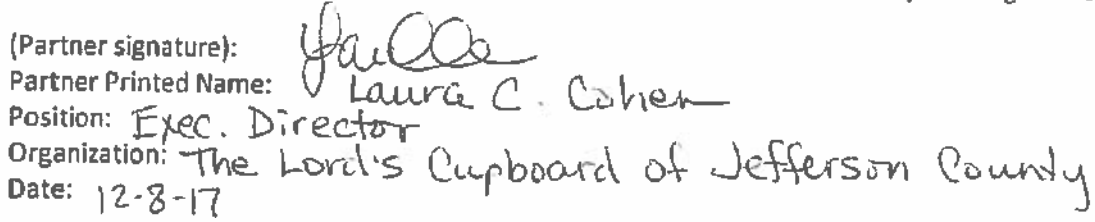 (Partner signature):
Partner Printed Name: Laura C. Cohen
Position: Exec. Director
Organization: The Lord's Cupboard of Jefferson County
Date: 12-8-17